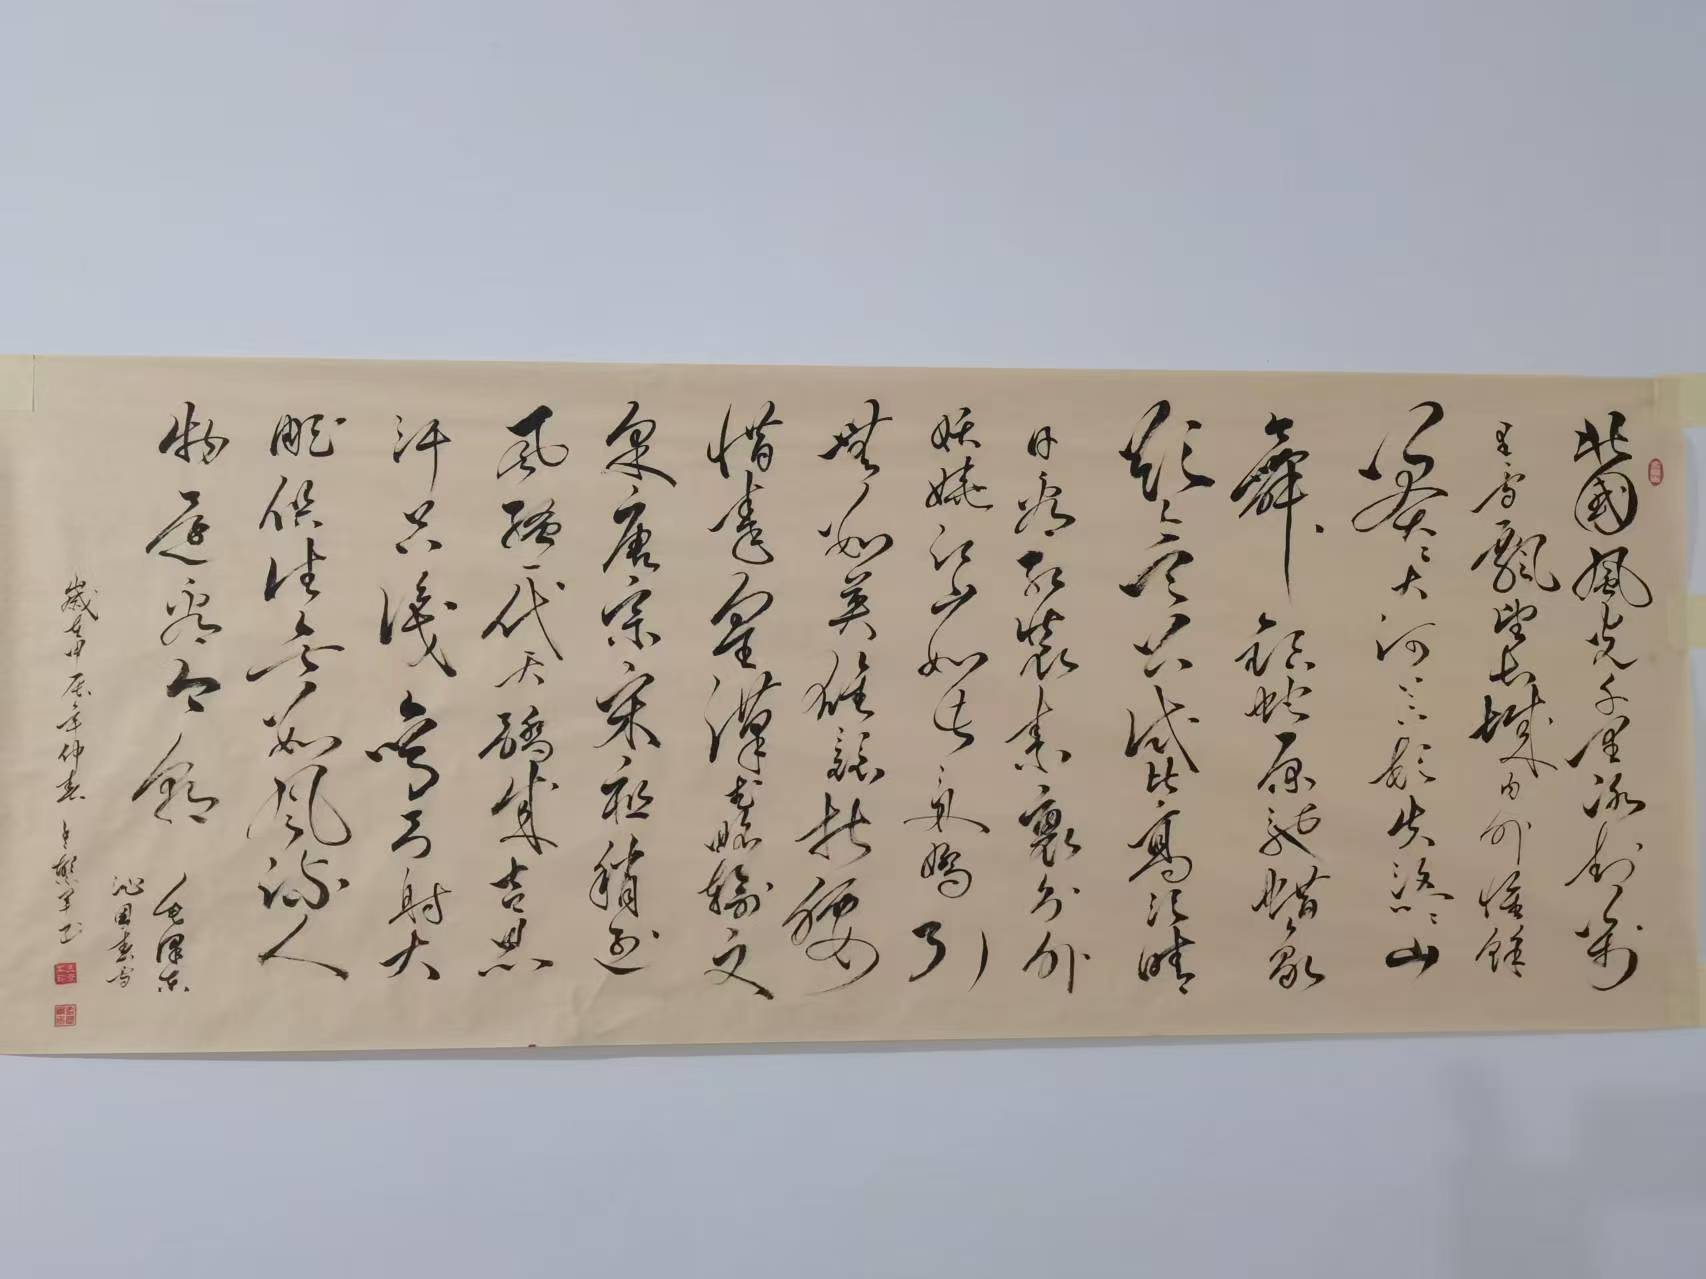 北國風光千里冰封萬
里雪飄望長城内外惟餘
莽々大河上下頓失滔々山
舞銀蛇原馳蠟象
欲與天公試比高須晴
日看紅裝素裹分外
妖嬈江山如此多嬌引
無數英雄競折腰
惜秦皇漢武略輸文
采唐宗宋祖稍遜
風騷一代天驕成吉思
汗只識彎弓射大
雕俱往矣數風流人
物還看今朝
毛澤東
沁園春雪
歲在甲辰年仲春